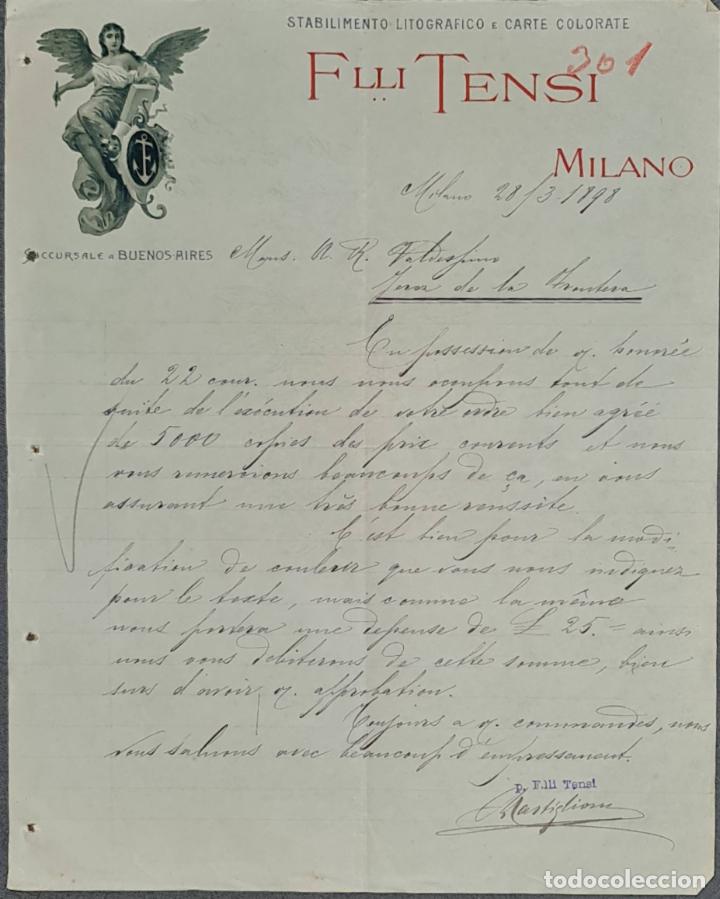 STABILIMENTO LITOGRAFICO E CARTE COLORATE
301
FLLI TENSI
MILANO
Milano 28/3-1898
SUCCURSALE A BUENOS-AIRES
Mons. A. R. Valdespino
Jerez de la Frontera
En possession de v. honorée
du 22 cour. nous nous occupons tout de
suite de l'exécution de votre ordre bien agréé
de 5000 copies des prix courents et nous
vous remercions beaucoups de ça, en vous
assurant une très bonne reussite.
C'est bien pour la modi-
fication de couleur que vous nous indiquez
pour le texte, mais comme la même
nous portera une depense de £ 25.= ainsi
nous vous debiterons de cette somme, bien
surs d'avoir v. approbation.
Toujours a v. commandes, nous
vous saluons avec beaucoup d'empressement.
p. F.lli Tensi
todocoleccion